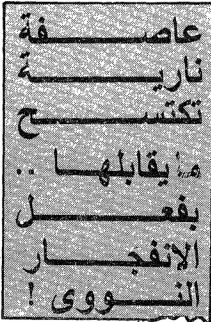 عاصفة
نارية
تكتسح
ما يقابلها ..
بفعل
الانفجار
النووى !